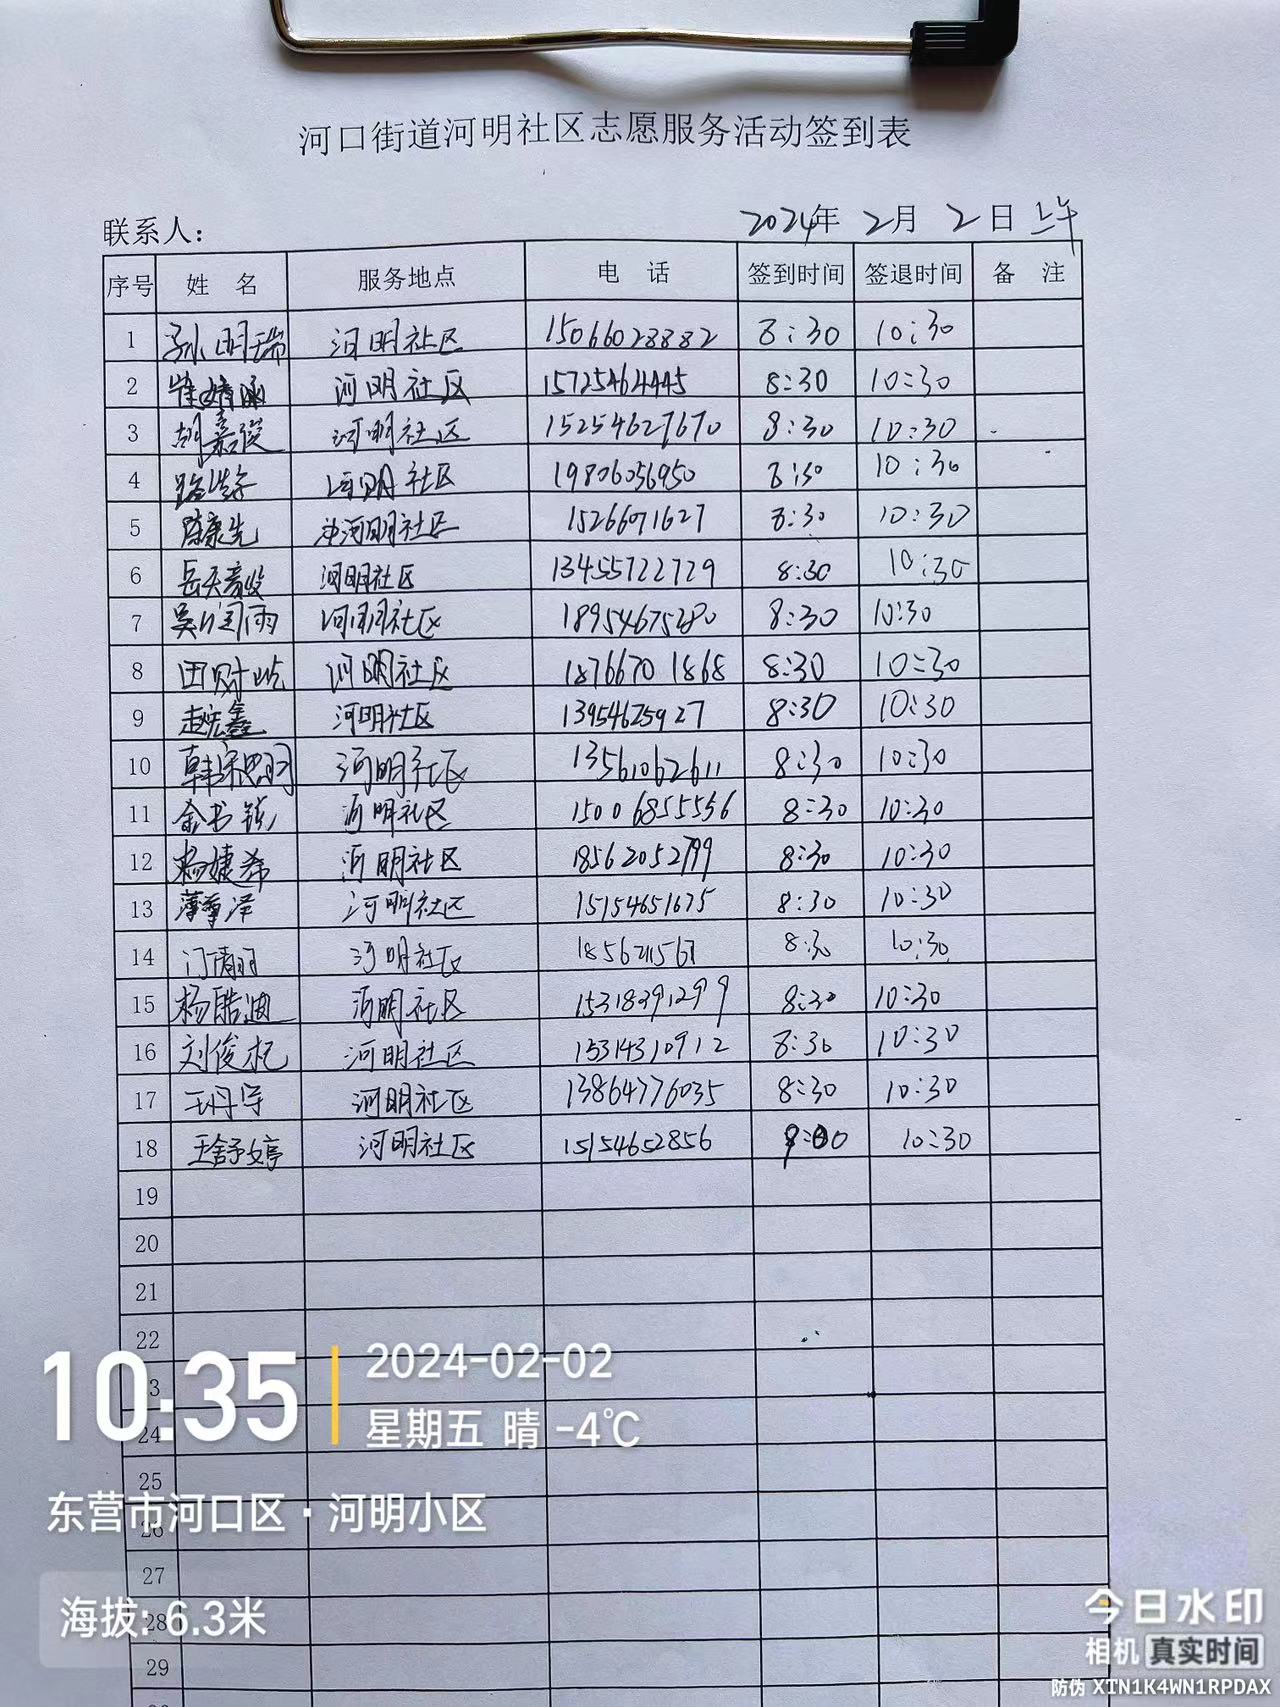 河口街道河明社区志愿服务活动签到表
联系人: 2024年 2月 2日 上午
序号 姓 名 服务地点 电 话 签到时间 签退时间 备 注
1 孙明瑞 河明社区 15066028882 8:30 10:30
2 河明社区 15725464445 8:30 10:30
3 胡嘉俊 河明社区 15254627670 8:30 10:30
4 河明社区 19806056950 8:30 10:30
5 陈康先 河明社区 15266071627 8:30 10:30
6 河明社区 13455722729 8:30 10:30
7 吴润雨 河明社区 18954675280 8:30 10:30
8 田财屹 河明社区 18766701868 8:30 10:30
9 赵宏鑫 河明社区 13954625927 8:30 10:30
10 河明社区 13561062611 8:30 10:30
11 河明社区 15006855556 8:30 10:30
12 杨婕希 河明社区 18562052799 8:30 10:30
13 河明社区 15154651675 8:30 10:30
14 河明社区 8:30 10:30
15 杨皓迪 河明社区 15318391299 8:30 10:30
16 刘俊杞 河明社区 15314310912 8:30 10:30
17 王丹宇 河明社区 13864776035 8:30 10:30
18 王舒婷 河明社区 15154652856 10:30
19
20
21
22
10:35 2024-02-02
星期五 晴 -4℃
24
25
东营市河口区·河明小区
26
27
28
海拔: 6.3米
29
今日水印
相机 真实时间
防伪 X1N1K4WN1RPDAX